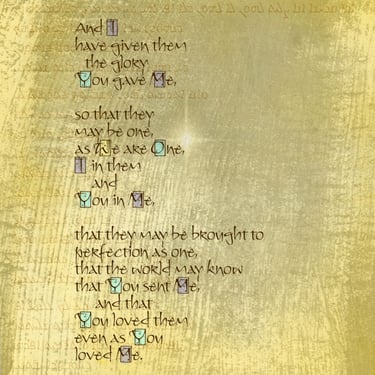 And I
have given them
the glory
You gave Me,
so that they
may be one,
as We are One,
I in them
and
You in Me,
that they may be brought to
perfection as one,
that the world may know
that You sent Me,
and that
You loved them
even as You
loved Me.